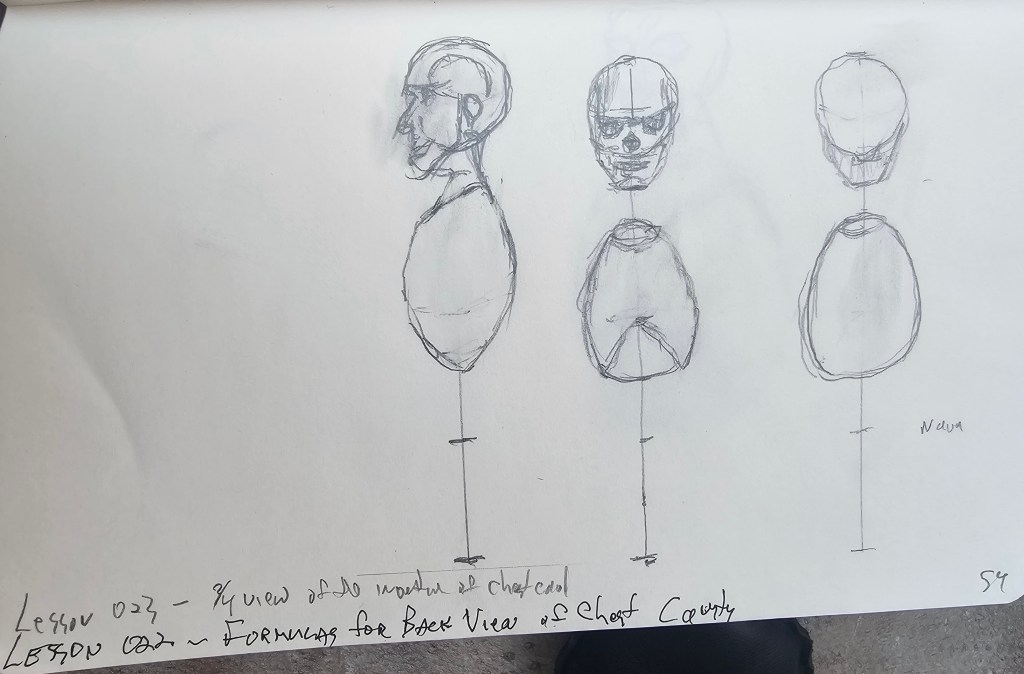 Nava
54
Lesson 023 - 3/4 view of
LESSON 022 ~ FORMULAS for BACK VIEW of Chest Cavity